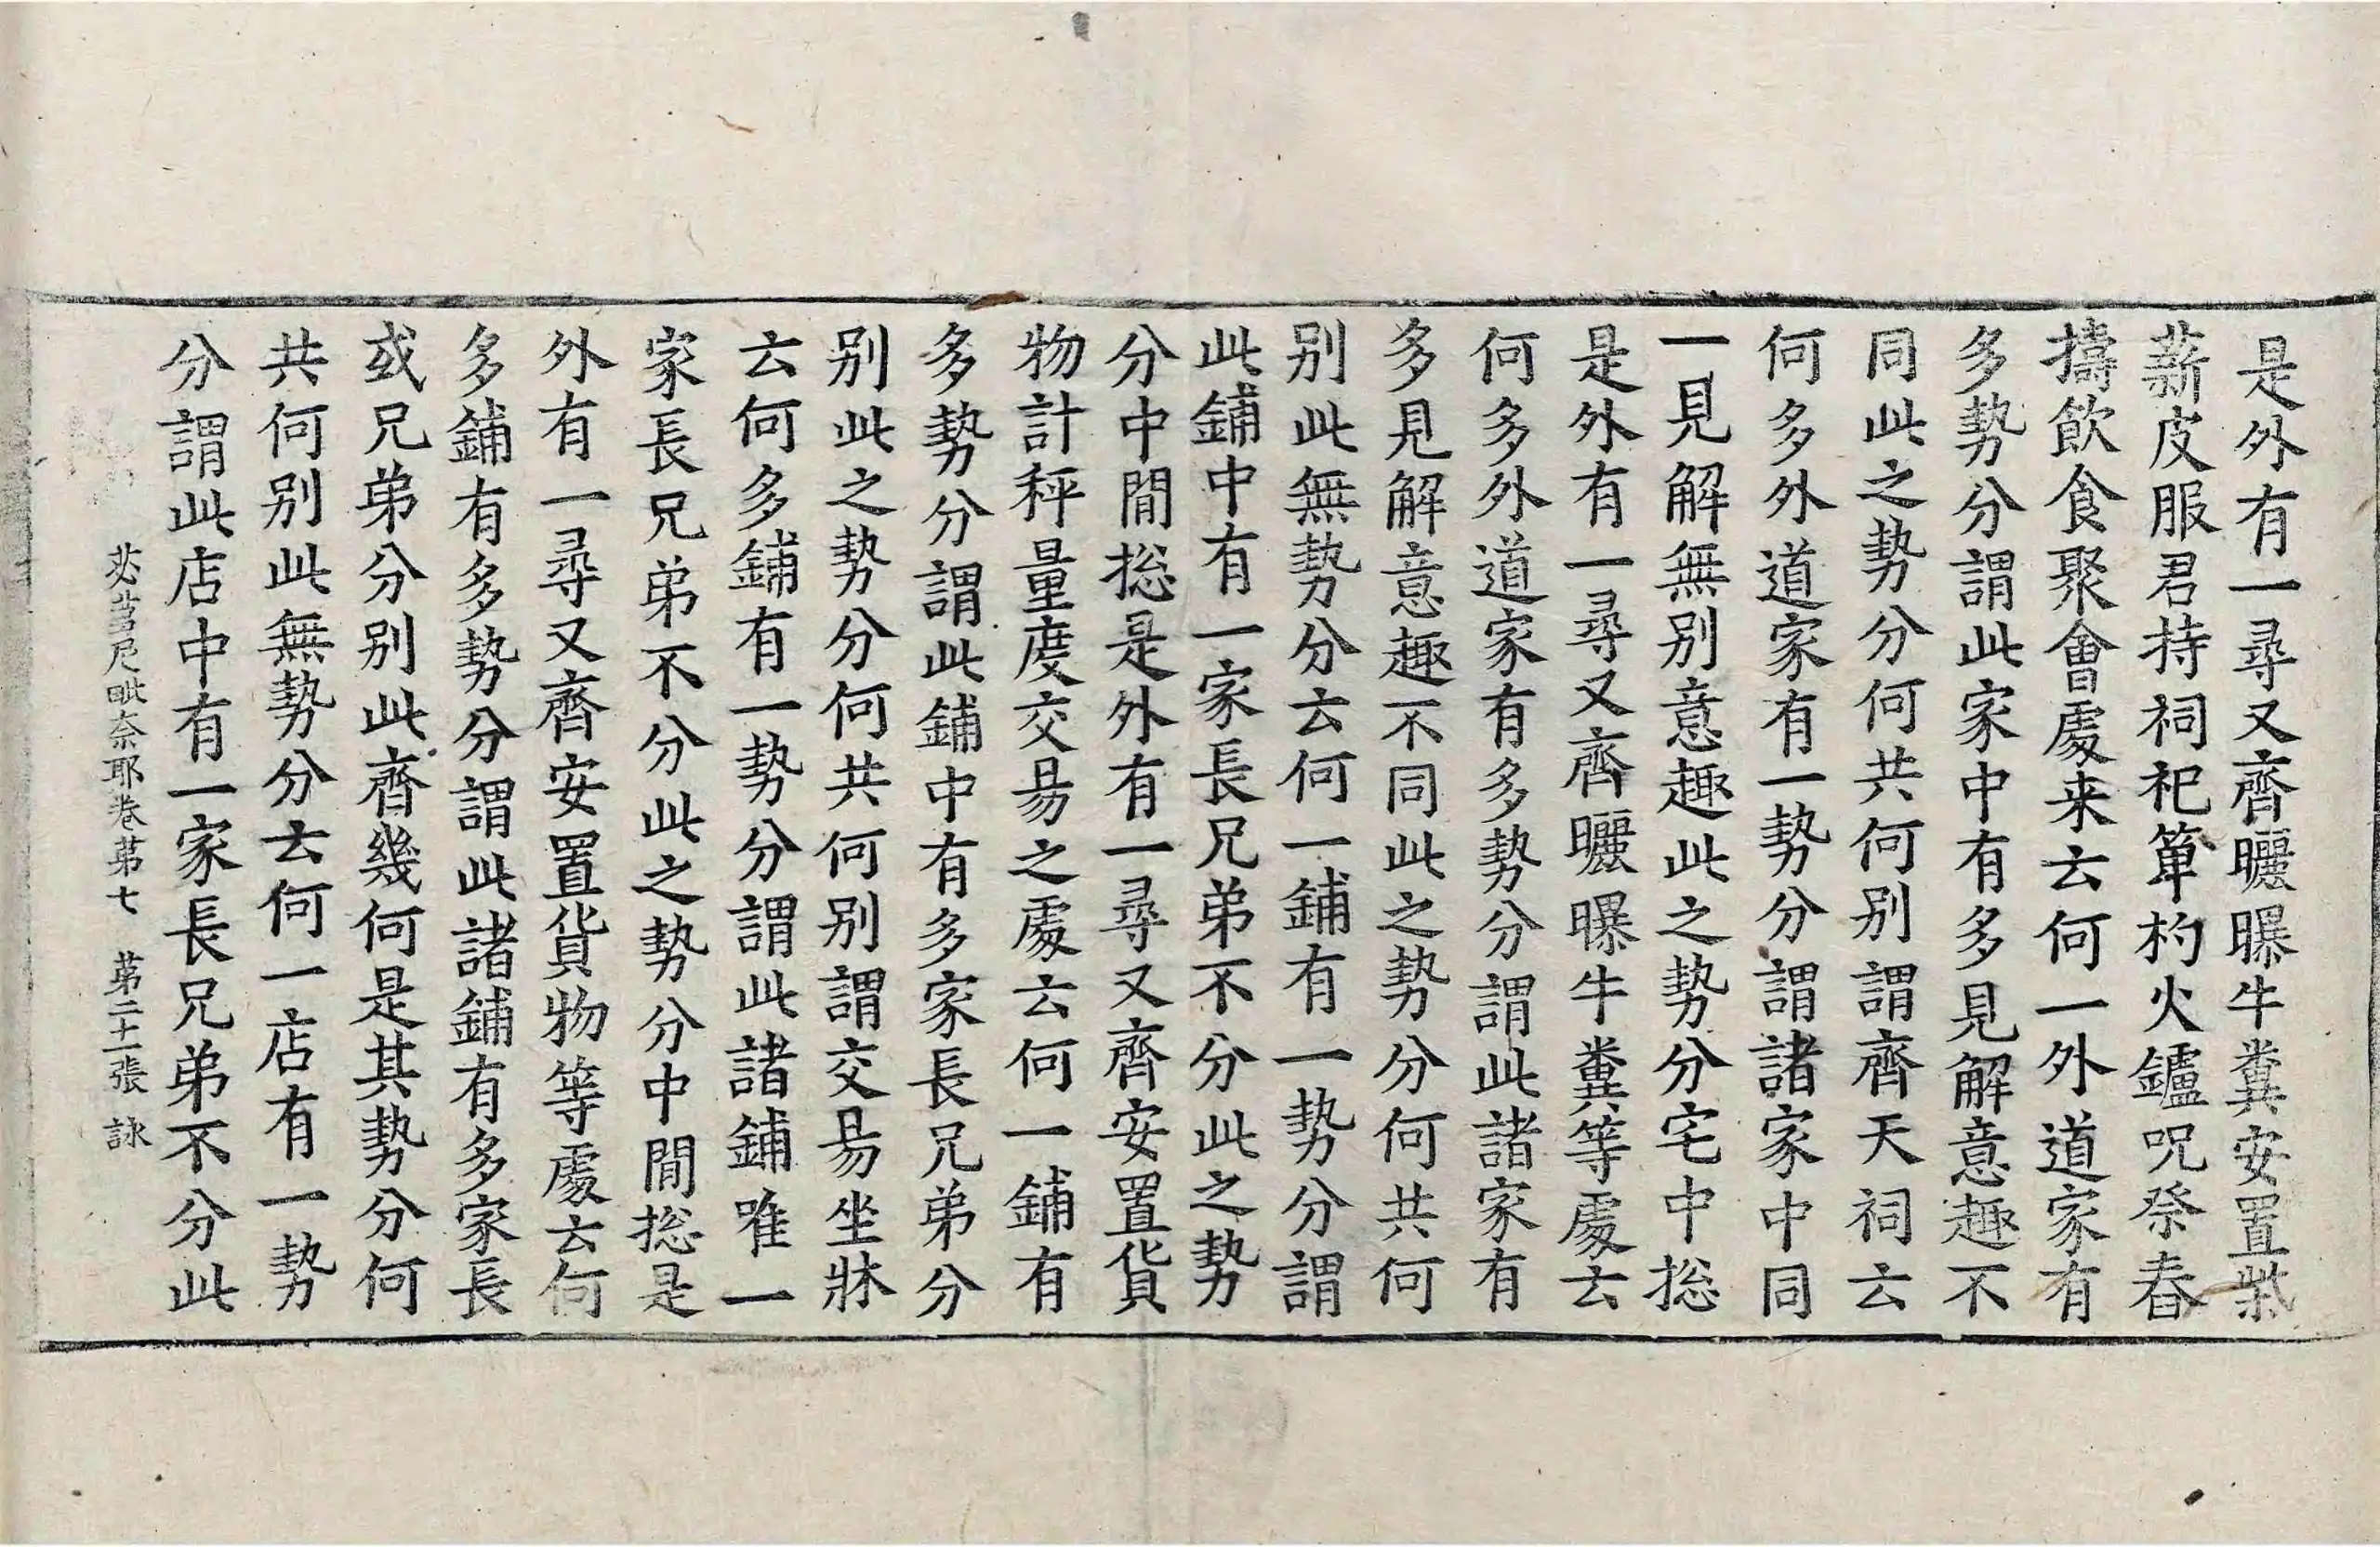 是外有一尋又齊曬曝牛糞安置柴
薪皮服君持祠祀箄杓火鑪呪祭舂
擣飲食聚會處来云何一外道家有
多勢分謂此家中有多見解意趣不
同此之勢分何共何别謂齊天祠云
何多外道家有一勢分謂諸家中同
一見解無别意趣此之勢分宅中捴
是外有一尋又齊曬曝牛糞等處云
何多外道家有多勢分謂此諸家有
多見解意趣不同此之勢分何共何
别此無勢分云何一鋪有一勢分謂
此鋪中有一家長兄弟不分此之勢
分中間捴是外有一尋又齊安置貨
物計秤量度交易之處云何一鋪有
多勢分謂此鋪中有多家長兄弟分
别此之勢分何共何别謂交易坐牀
云何多鋪有一勢分謂此諸鋪唯一
家長兄弟不分此之勢分中間捴是
外有一尋又齊安置貨物等處云何
多鋪有多勢分謂此諸鋪有多家長
或兄弟分别此齊幾何是其勢分何
共何别此無勢分云何一店有一勢
分謂此店中有一家長兄弟不分此
苾蒭尼毗奈耶卷苐七 苐二十一張 詠